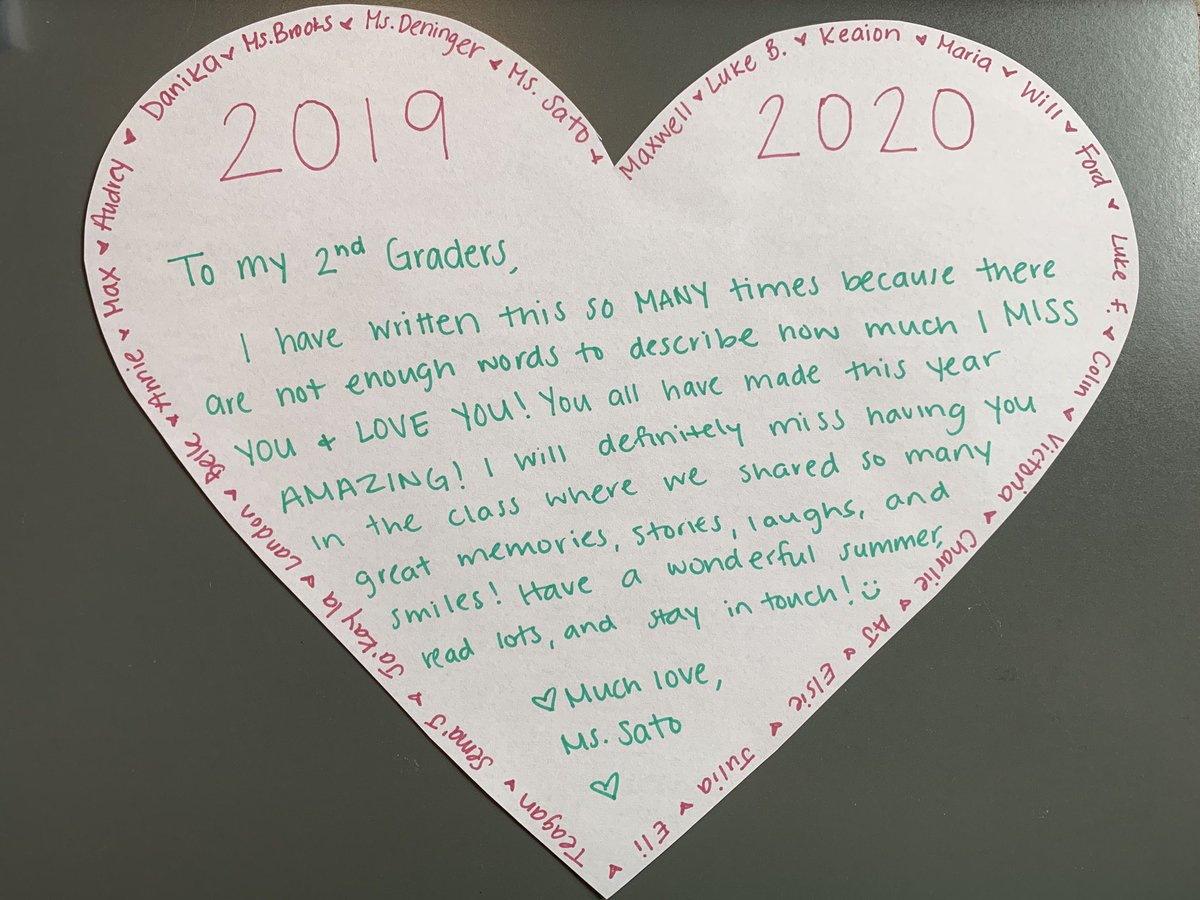 2019
2020
To my 2nd Graders,
I have written this so MANY times because there
are not enough words to describe how much I MISS
YOU + LOVE YOU! You all have made this year
AMAZING! I will definitely miss having you
in the class where we shared so many
great memories, stories, laughs, and
smiles! Have a wonderful summer,
read lots, and stay in touch!
Much love,
Ms. Sato
Maxwell
Luke B.
Keaion
Maria
Will
Ford
Luke F.
Colin
Victoria
Charlie
AJ
Elsie
Julia
Eli
Teagan
Sema'J
Ja'Kayla
Landon
Belle
Annie
Max
Audrey
Danika
Ms. Brooks
Ms. Deninger
Ms. Sato